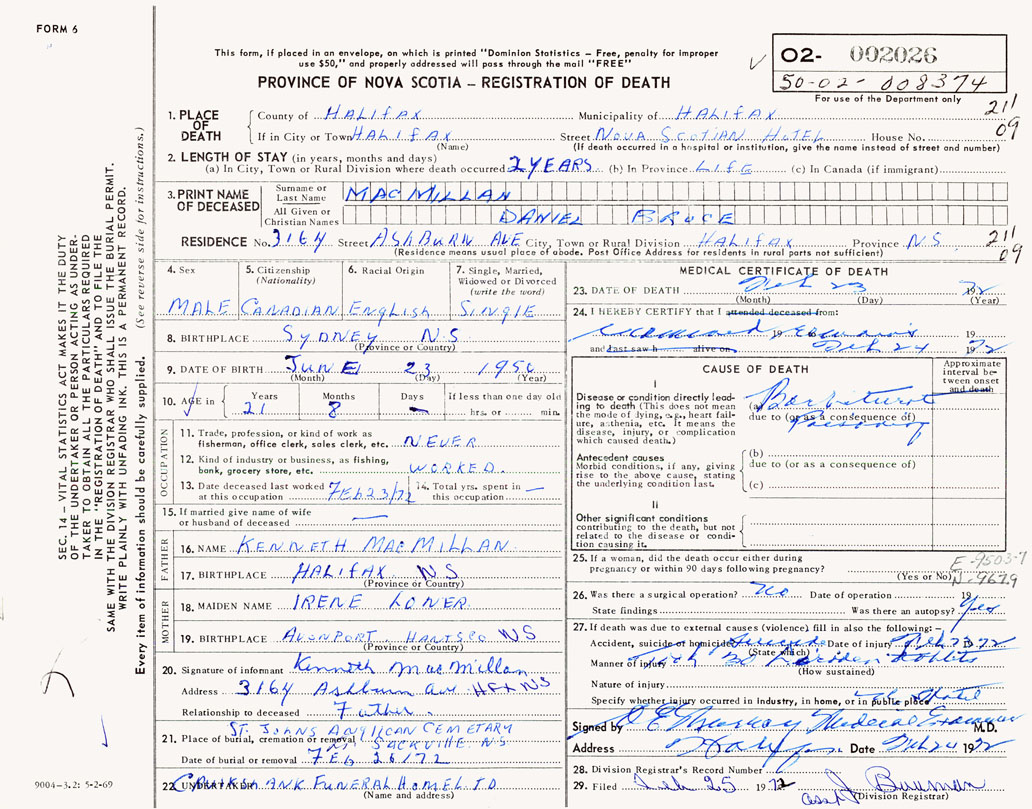 FORM 6
This form, if placed in an envelope, on which is printed "Dominion Statistics – Free, penalty for improper
use $50," and properly addressed will pass through the mail "FREE"
PROVINCE OF NOVA SCOTIA – REGISTRATION OF DEATH
O2- 002026
50-02-008374
For use of the Department only
211
09
1. PLACE OF DEATH
County of HALIFAX Municipality of HALIFAX
If in City or Town HALIFAX Street NOVA SCOTIAN HOTEL House No.
(Name) (If death occurred in a hospital or institution, give the name instead of street and number)
2. LENGTH OF STAY (in years, months and days)
(a) In City, Town or Rural Division where death occurred 2 YEARS (b) In Province LIFE (c) In Canada (if immigrant)
3. PRINT NAME OF DECEASED
Surname or Last Name MACMILLAN
All Given or Christian Names DANIEL BRUCE
RESIDENCE No. 3164 Street ASHBURN AVE City, Town or Rural Division HALIFAX Province N.S.
(Residence means usual place of abode. Post Office Address for residents in rural parts not sufficient)
211
09
4. Sex
MALE
5. Citizenship (Nationality)
CANADIAN
6. Racial Origin
ENGLISH
7. Single, Married, Widowed or Divorced (write the word)
SINGLE
8. BIRTHPLACE SYDNEY NS
(Province or Country)
9. DATE OF BIRTH JUNE 23 1950
(Month) (Day) (Year)
10. AGE in Years Months Days if less than one day old
21 8 – hrs. or min.
OCCUPATION
11. Trade, profession, or kind of work as
fisherman, office clerk, sales clerk, etc. NEVER
12. Kind of industry or business, as fishing,
bank, grocery store, etc. WORKED
13. Date deceased last worked at this occupation FEB 23/72
14. Total yrs. spent in this occupation –
15. If married give name of wife
or husband of deceased —
FATHER
16. NAME KENNETH MACMILLAN
17. BIRTHPLACE HALIFAX NS
(Province or Country)
MOTHER
18. MAIDEN NAME IRENE
19. BIRTHPLACE AVONPORT HANTS CO NS
(Province or Country)
20. Signature of informant Kenneth MacMillan
Address 3164 Ashburn Ave HFX NS
Relationship to deceased Father
ST. JOHNS ANGLICAN CEMETARY
21. Place of burial, cremation or removal SACKVILLE N.S.
Date of burial or removal FEB 26/72
22. UNDERTAKER CRUIKSHANK FUNERAL HOME LTD
(Name and address)
MEDICAL CERTIFICATE OF DEATH
23. DATE OF DEATH Feb 23 1972
(Month) (Day) (Year)
24. I HEREBY CERTIFY that I attended deceased from:
19 19
and last saw h alive on Feb 24 1972
CAUSE OF DEATH
Approximate interval between onset and death
I
Disease or condition directly leading to death (This does not mean the mode of dying, e.g., heart failure, asthenia, etc. It means the disease, injury, or complication which caused death.)
(a) Barbiturate
due to (or as a consequence of)
Poisoning
Antecedent causes
Morbid conditions, if any, giving rise to the above cause, stating the underlying condition last.
(b)
due to (or as a consequence of)
(c)
II
Other significant conditions
contributing to the death, but not related to the disease or condition causing it.
25. If a woman, did the death occur either during
pregnancy or within 90 days following pregnancy?
(Yes or No)
E-9503-7
N-9679
26. Was there a surgical operation? No Date of operation 19
State findings Was there an autopsy? Yes
27. If death was due to external causes (violence) fill in also the following:–
Accident, suicide or homicide Suicide Date of injury Feb 23 72
(State which)
Manner of injury
(How sustained)
Nature of injury
Specify whether injury occurred in industry, in home, or in public place Hotel
Signed by Medical Examiner M.D.
Address Halifax Date Feb 24 1972
28. Division Registrar's Record Number
29. Filed Feb 25 1972
(Division Registrar)
SEC. 14 – VITAL STATISTICS ACT MAKES IT THE DUTY
OF THE UNDERTAKER OR PERSON ACTING AS UNDER-
TAKER TO OBTAIN ALL THE PARTICULARS REQUIRED
IN THE "REGISTRATION OF DEATH" AND TO FILE THE
SAME WITH THE DIVISION REGISTRAR WHO SHALL ISSUE THE BURIAL PERMIT.
WRITE PLAINLY WITH UNFADING INK. THIS IS A PERMANENT RECORD.
Every item of information should be carefully supplied. (See reverse side for instructions.)
9004-3.2: 5-2-69